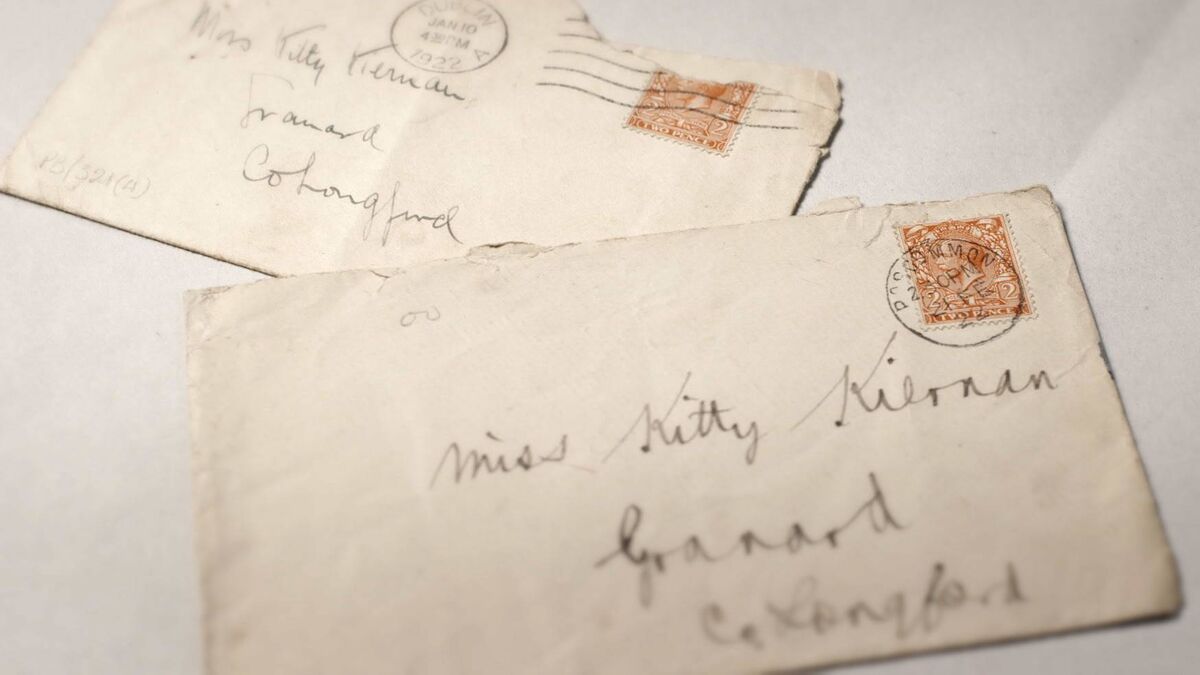 Miss Kitty Kiernan
Granard
Co Longford
PB/321(4)
DUBLIN
JAN 10
1922
A
TWO PENCE
2
Miss Kitty Kiernan
Granard
Co. Longford
2
2
TWO PENCE